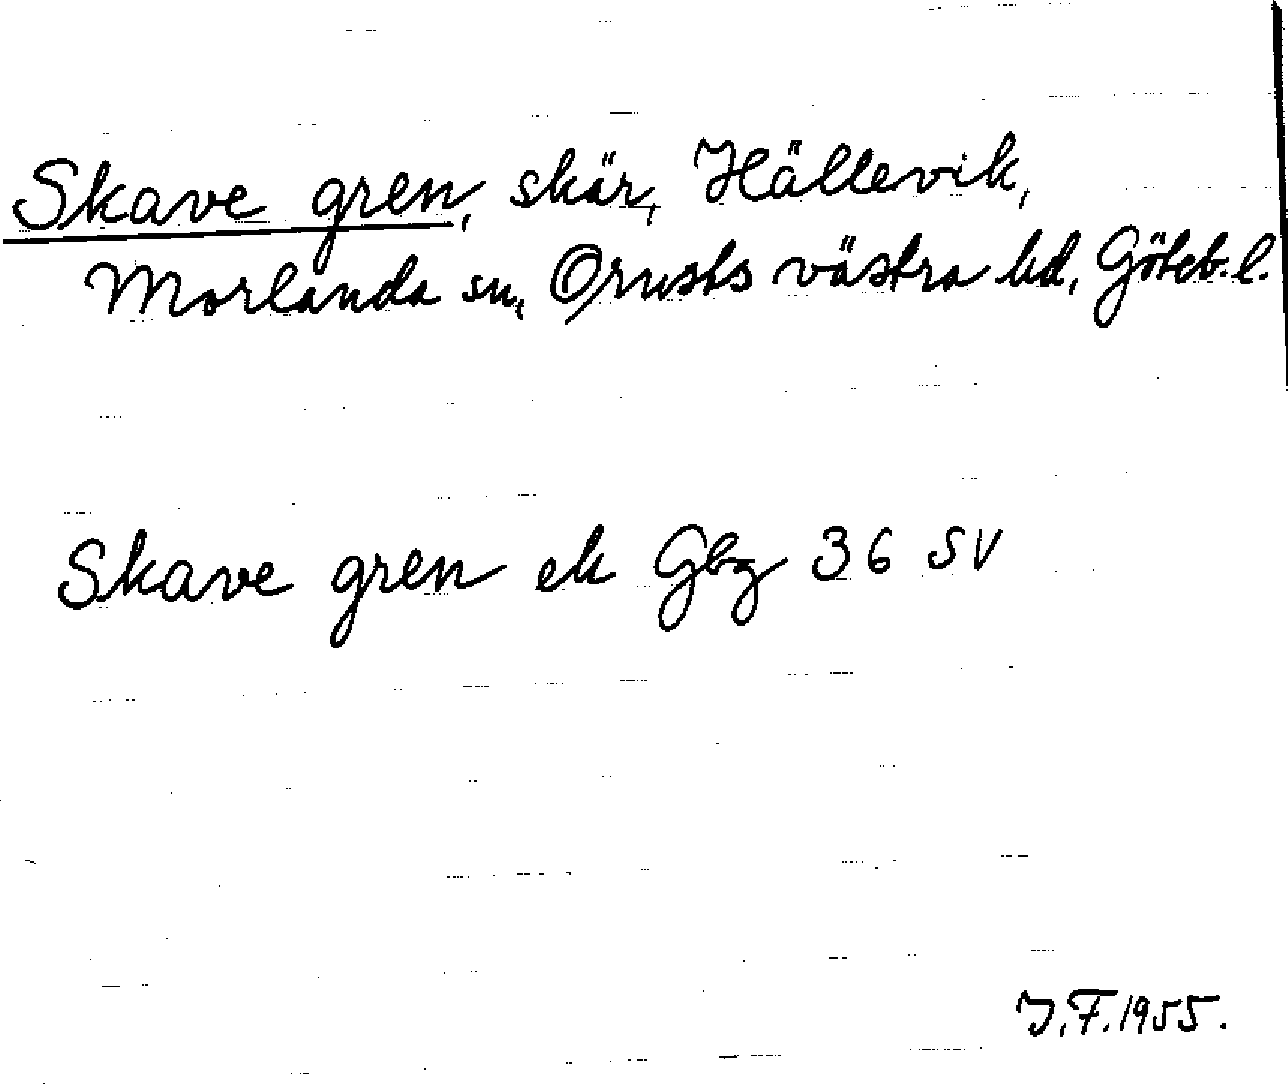 Skave gren, skär, Hällevik,
Morlanda sn, Orusts västra hd, Göteb. l.
Skave gren ek Gbg 36 SV
J.F. 1955.